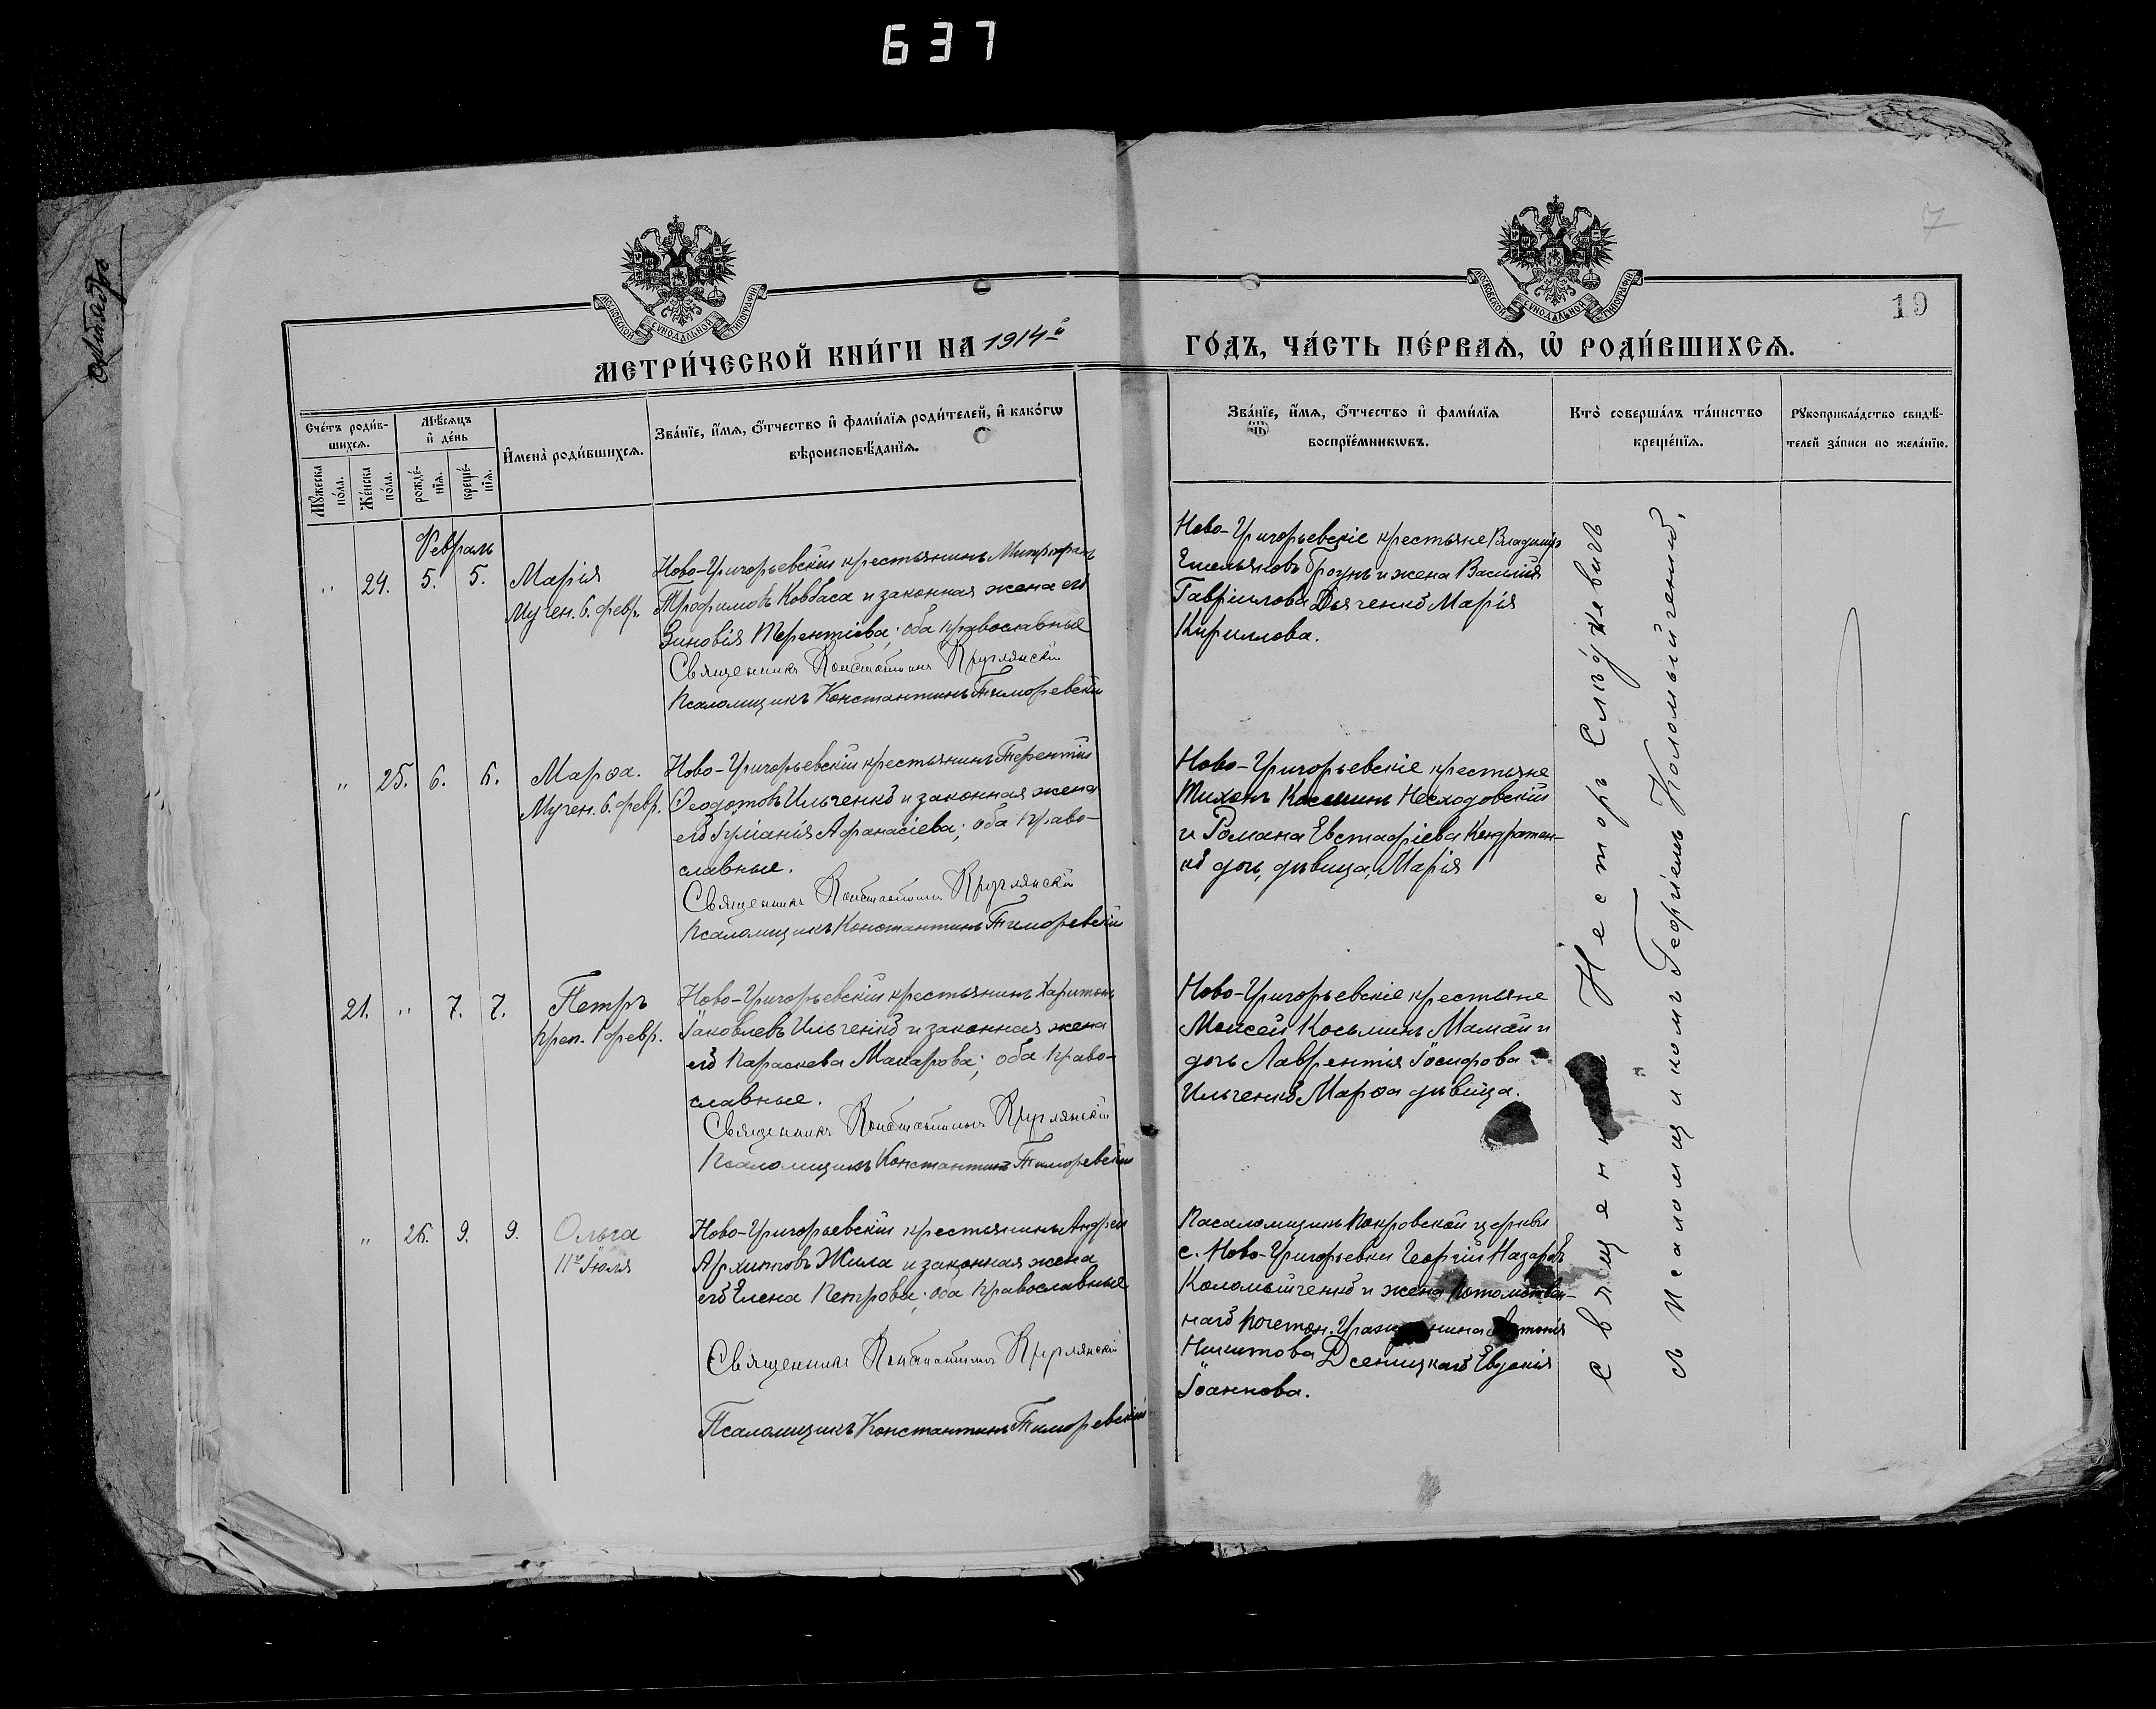 637
октябрь
7
19
МОСКОВСКОЙ СѴНОДАЛЬНОЙ ТИПОГРАФІИ
МОСКОВСКОЙ СѴНОДАЛЬНОЙ ТИПОГРАФІИ
МЕТРИ́ЧЕСКОЙ КНИ́ГИ НА 1914й
ГО́ДЪ, ЧА́СТЬ ПЕ́РВАѦ, Ѡ҆ РОДИ́ВШИХСѦ.
Сче́тъ роди́в-
шихсѧ.
Мꙋ́жеска
по́ла.
Же́нска
по́ла.
Мѣ́сѧцъ
и҆ де́нь
рожде́-
нїѧ.
креще́-
нїѧ.
И҆мена̀ роди́вшихсѧ.
Зва́нїе, и҆́мѧ, ѻ҆́тчество и҆ фами́лїѧ роди́телей, и҆ како́гѡ
вѣроисповѣ́данїѧ.
Зва́нїе, и҆́мѧ, ѻ҆́тчество и҆ фами́лїѧ
воспрїе́мникѡвъ.
Кто̀ соверша́лъ та́инство
креще́нїѧ.
Рꙋкоприкла́дство свидѣ́-
телей за́писи по жела́нїю.
Февраль
" 24. 5. 5. Марія
Мучен. 6. февр.
Ново-Григорьевскій крестьянинъ Митрофанъ
Трофимовъ Ковбаса и законная жена его
Зиновія Терентіева; оба православные
Священникъ Константинъ Круглянскій
Псаломщикъ Константинъ Тиморевскій
Ново-Григорьевскіе крестьяне Владиміръ
Емельяновъ Броунъ и жена Василія
Гавріилова Дяченко Марія
Кириллова.
" 25. 6. 6. Марѳа.
Мучен. 6. февр.
Ново-Григорьевскій крестьянинъ Терентій
Ѳеодотовъ Ильченко и законная жена
его Іуліанія Афанасіева; оба право-
славные.
Священникъ Константинъ Круглянскій
Псаломщикъ Константинъ Тиморевскій
Ново-Григорьевскіе крестьяне
Тихонъ Косминъ Несходовскій
и Романа Евстафіева Кендратен-
ко дочь, дѣвица, Марія
21. " 7. 7. Петръ
преп. 1 февр.
Ново-Григорьевскій крестьянинъ Харитонъ
Іаковлевъ Ильченко и законная жена
его Параскева Макарова; оба право-
славные.
Священникъ Константинъ Круглянскій
Псаломщикъ Константинъ Тиморевскій
Ново-Григорьевскіе крестьяне
Моисей Косьминъ Мамай и
дочь Лаврентія Іосифова
Ильченко Марѳа дѣвица.
" 26. 9. 9. Ольга
11го Іюля
Ново-Григорьевскій крестьянинъ Андрей
Архиповъ Жила и законная жена
его Елена Петрова; оба православные
Священникъ Константинъ Круглянскій
Псаломщикъ Константинъ Тиморевскій
Псаломщикъ Покровской церкви
с. Ново-Григорьевки Георгій Назаровъ
Коломыйченко и жена потомствен-
наго почетн. гражданина Антонія
Никитова Евдокія
Іоаннова.
Священникъ Несторъ
съ псаломщикомъ Георгіемъ Коломыйченко.